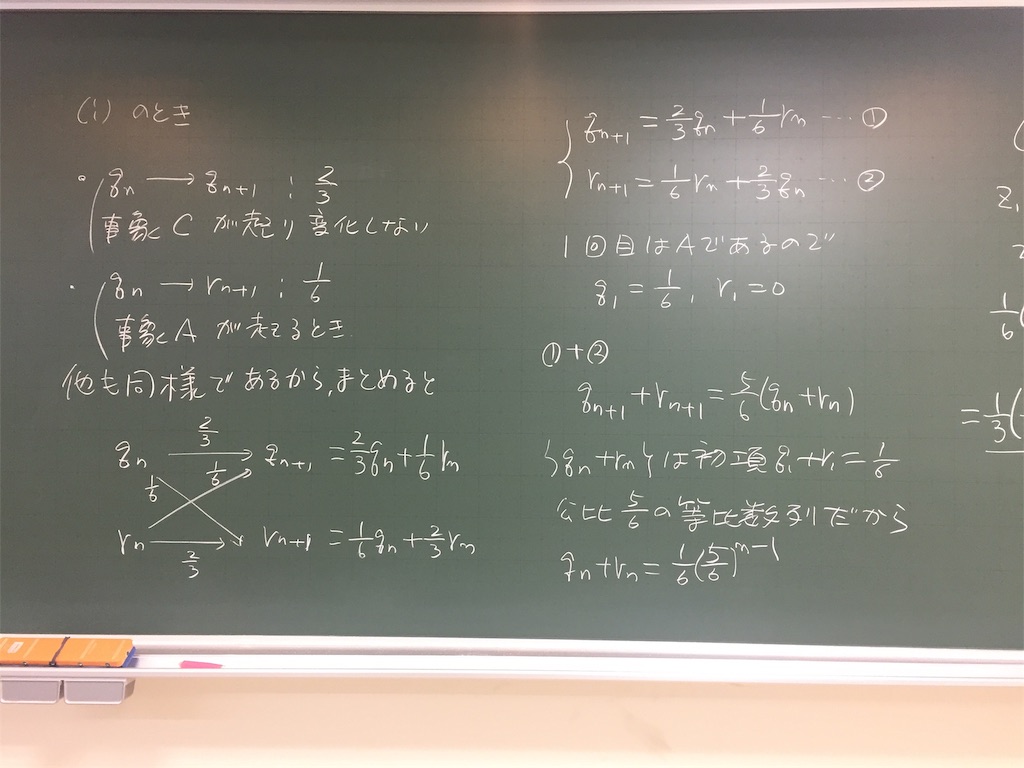 (i) のとき
・ qn → qn+1 : 2/3
事象 C が起り 変化しない
・ qn → rn+1 : 1/6
事象 A が起こるとき
他も同様であるから,まとめると
qn 2/3→ qn+1 = 2/3 qn + 1/6 rn
1/6 1/6
rn → rn+1 = 1/6 qn + 2/3 rn
2/3
qn+1 = 2/3 qn + 1/6 rn … ①
rn+1 = 1/6 rn + 2/3 qn … ②
1回目はAであるので
q1 = 1/6, r1 = 0
①+②
qn+1 + rn+1 = 5/6 (qn + rn)
{qn + rn} は初項 q1 + r1 = 1/6
公比 5/6 の等比数列だから
qn + rn = 1/6 (5/6)^n-1
1/6 (
= 1/3 (